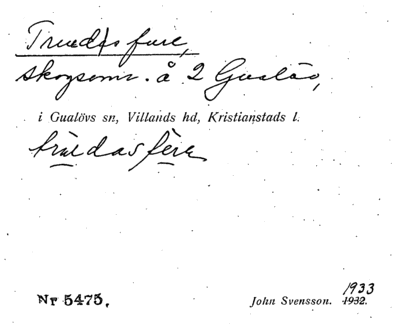 Truedas fure,
skogsomr. å 2 Gualöv,
i Gualövs sn, Villands hd, Kristianstads l.
Nr 5475.
1933
John Svensson. 1932.